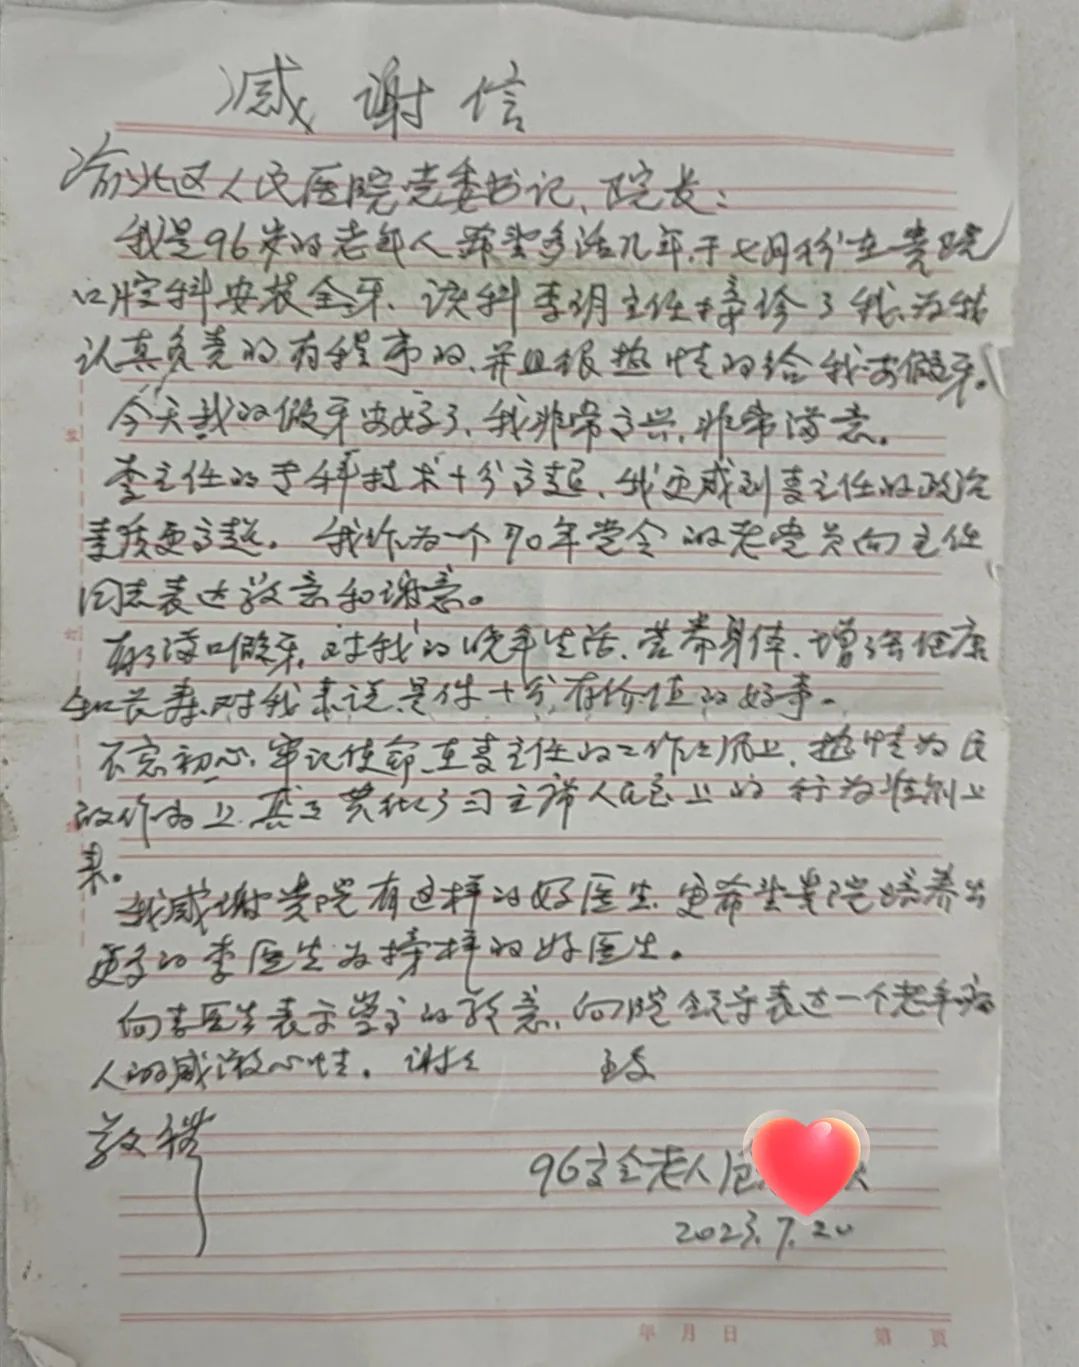 感谢信
渝北区人民医院党委书记、院长：
我是96岁的老年人希望多活几年，于七月份在贵院
口腔科安装全牙、该科李玥主任接诊了我、为我
认真负责的有程序的、并且很热情的给我安假牙。
今天我的假牙安好了、我非常高兴，非常满意。
李主任的专科技术十分高超、我更感到李主任的政治
素质更高超。我作为一个70年党令的老党员向主任
同志表达敬意和谢意。
有了满口假牙，对我的晚年生活、营养身体、增强健康
和长寿、对我来说是件十分有价值的好事。
不忘初心、牢记使命、在李主任的工作作风上、热情为民
的作为上 真正 习主席人民至上的行为准则上
来。
我感谢贵院有这样的好医生、更希望贵院培养出
更多的李医生为榜样的好医生。
向李医生表示崇高的敬意、向院领导表达一个老年病
人的感激心情。谢谢 致
敬礼
96岁全老人
2023.7.20
年 月 日 第 页